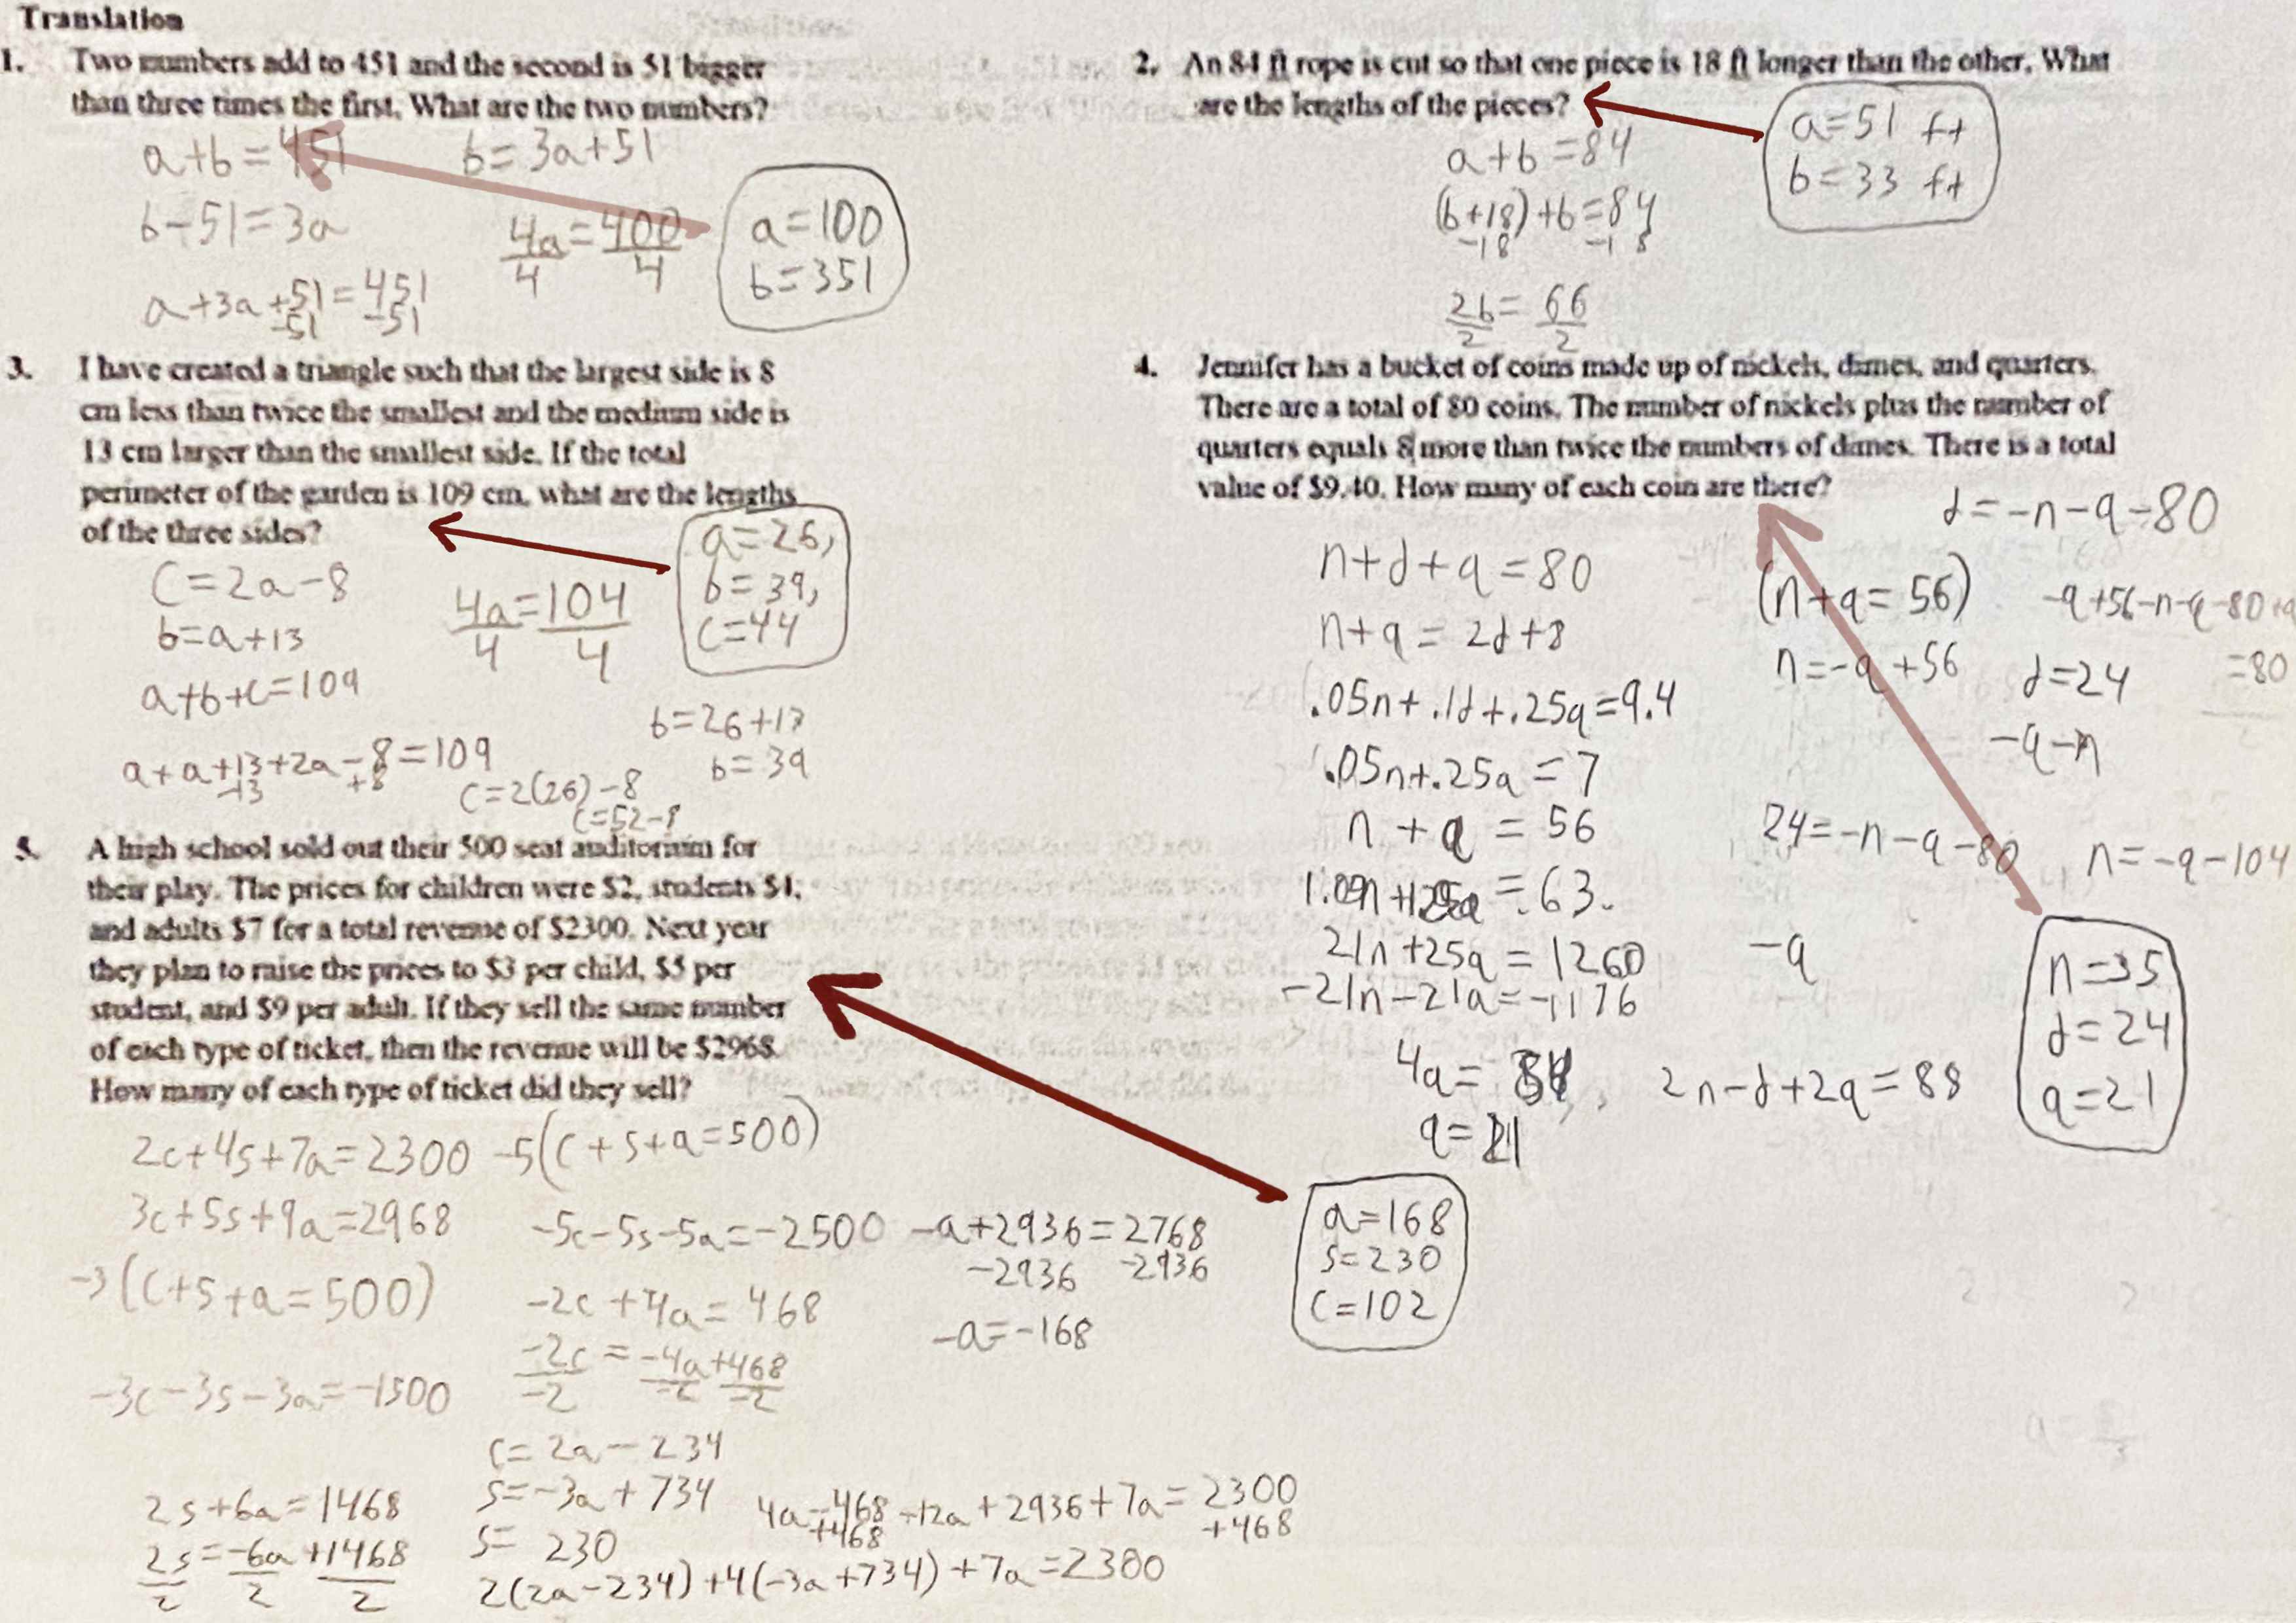 Translation
1. Two numbers add to 451 and the second is 51 bigger
than three times the first. What are the two numbers?
a+b=451
b=3a+51
b-51=3a
4a=400
4 4
a+3a+51=451
-51 -51
a=100
b=351
2. An 84 ft rope is cut so that one piece is 18 ft longer than the other. What
are the lengths of the pieces?
a+b=84
(b+18)+b=84
-18 -18
2b=66
2 2
a=51 ft
b=33 ft
3. I have created a triangle such that the largest side is 8
cm less than twice the smallest and the medium side is
13 cm larger than the smallest side. If the total
perimeter of the garden is 109 cm, what are the lengths
of the three sides?
c=2a-8
b=a+13
a+b+c=109
a+a+13+2a-8=109
-13 +8
4a=104
4 4
a=26,
b=39,
c=44
b=26+13
b=39
c=2(26)-8
c=52-8
4. Jennifer has a bucket of coins made up of nickels, dimes, and quarters.
There are a total of 80 coins. The number of nickels plus the number of
quarters equals 8 more than twice the numbers of dimes. There is a total
value of $9.40. How many of each coin are there?
n+d+q=80
n+q=2d+8
.05n+.1d+.25q=9.4
.05n+.25q=7
n+q=56
=63.
21n+25q=1260
-21n-21q=-1176
4q=84
q=21
d=-n-q-80
(n+q=56)
n=-q+56
-q+56-n-q-80+q
=80
d=24
-q-n
24=-n-q-80
n=-q-104
-q
2n-d+2q=88
n=35
d=24
q=21
5. A high school sold out their 500 seat auditorium for
their play. The prices for children were $2, students $4,
and adults $7 for a total revenue of $2300. Next year
they plan to raise the prices to $3 per child, $5 per
student, and $9 per adult. If they sell the same number
of each type of ticket, then the revenue will be $2968.
How many of each type of ticket did they sell?
2c+4s+7a=2300
-5(c+s+a=500)
3c+5s+9a=2968
-3(c+s+a=500)
-3c-3s-3a=-1500
2s+6a=1468
2s=-6a+1468
2 2 2
-5c-5s-5a=-2500
-2c+4a=468
-2c=-4a+468
-2 -2 -2
c=2a-234
s=-3a+734
s=230
2(2a-234)+4(-3a+734)+7a=2300
4a-468-12a+2936+7a=2300
+468 +468
-a+2936=2768
-2936 -2936
-a=-168
a=168
s=230
c=102